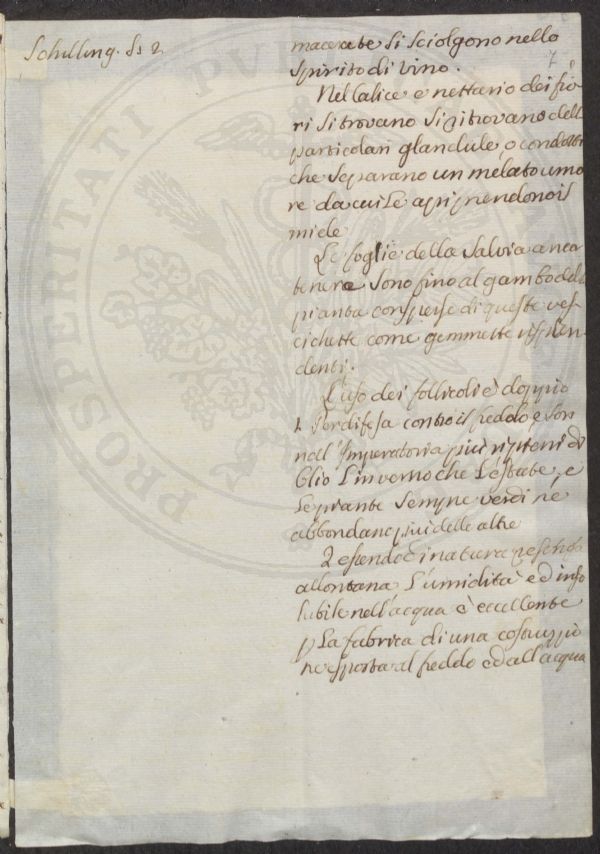 Schilling. Ss 2
7
macerate si sciolgono nello
spirito di vino.
Nel Calice e nettario dei fio
ri si trovano si ritrovano delle
particolari glandule, o condotti
che separano un melato umo
re da cui Le api prendono il
miele
Le foglie della Salvia ancor
tenere sono fino al gambo della
pianta consperse di queste ves
cichette come gemmette risplen
denti.
L'uso dei follicoli è doppio
1. Per difesa contro il freddo e son
nell' Imperatoria più ripieni di
Olio L'inverno che L'estate, e
Le piante sempre verdi ne
abbondano più delle altre
2 essendo di natura
allontana L'umidità ed inso
lubile nell'acqua è eccellente
p La fabrica di una cosa più
esposta al freddo ed all'acqua
PROSPERITATI PUBLICAE